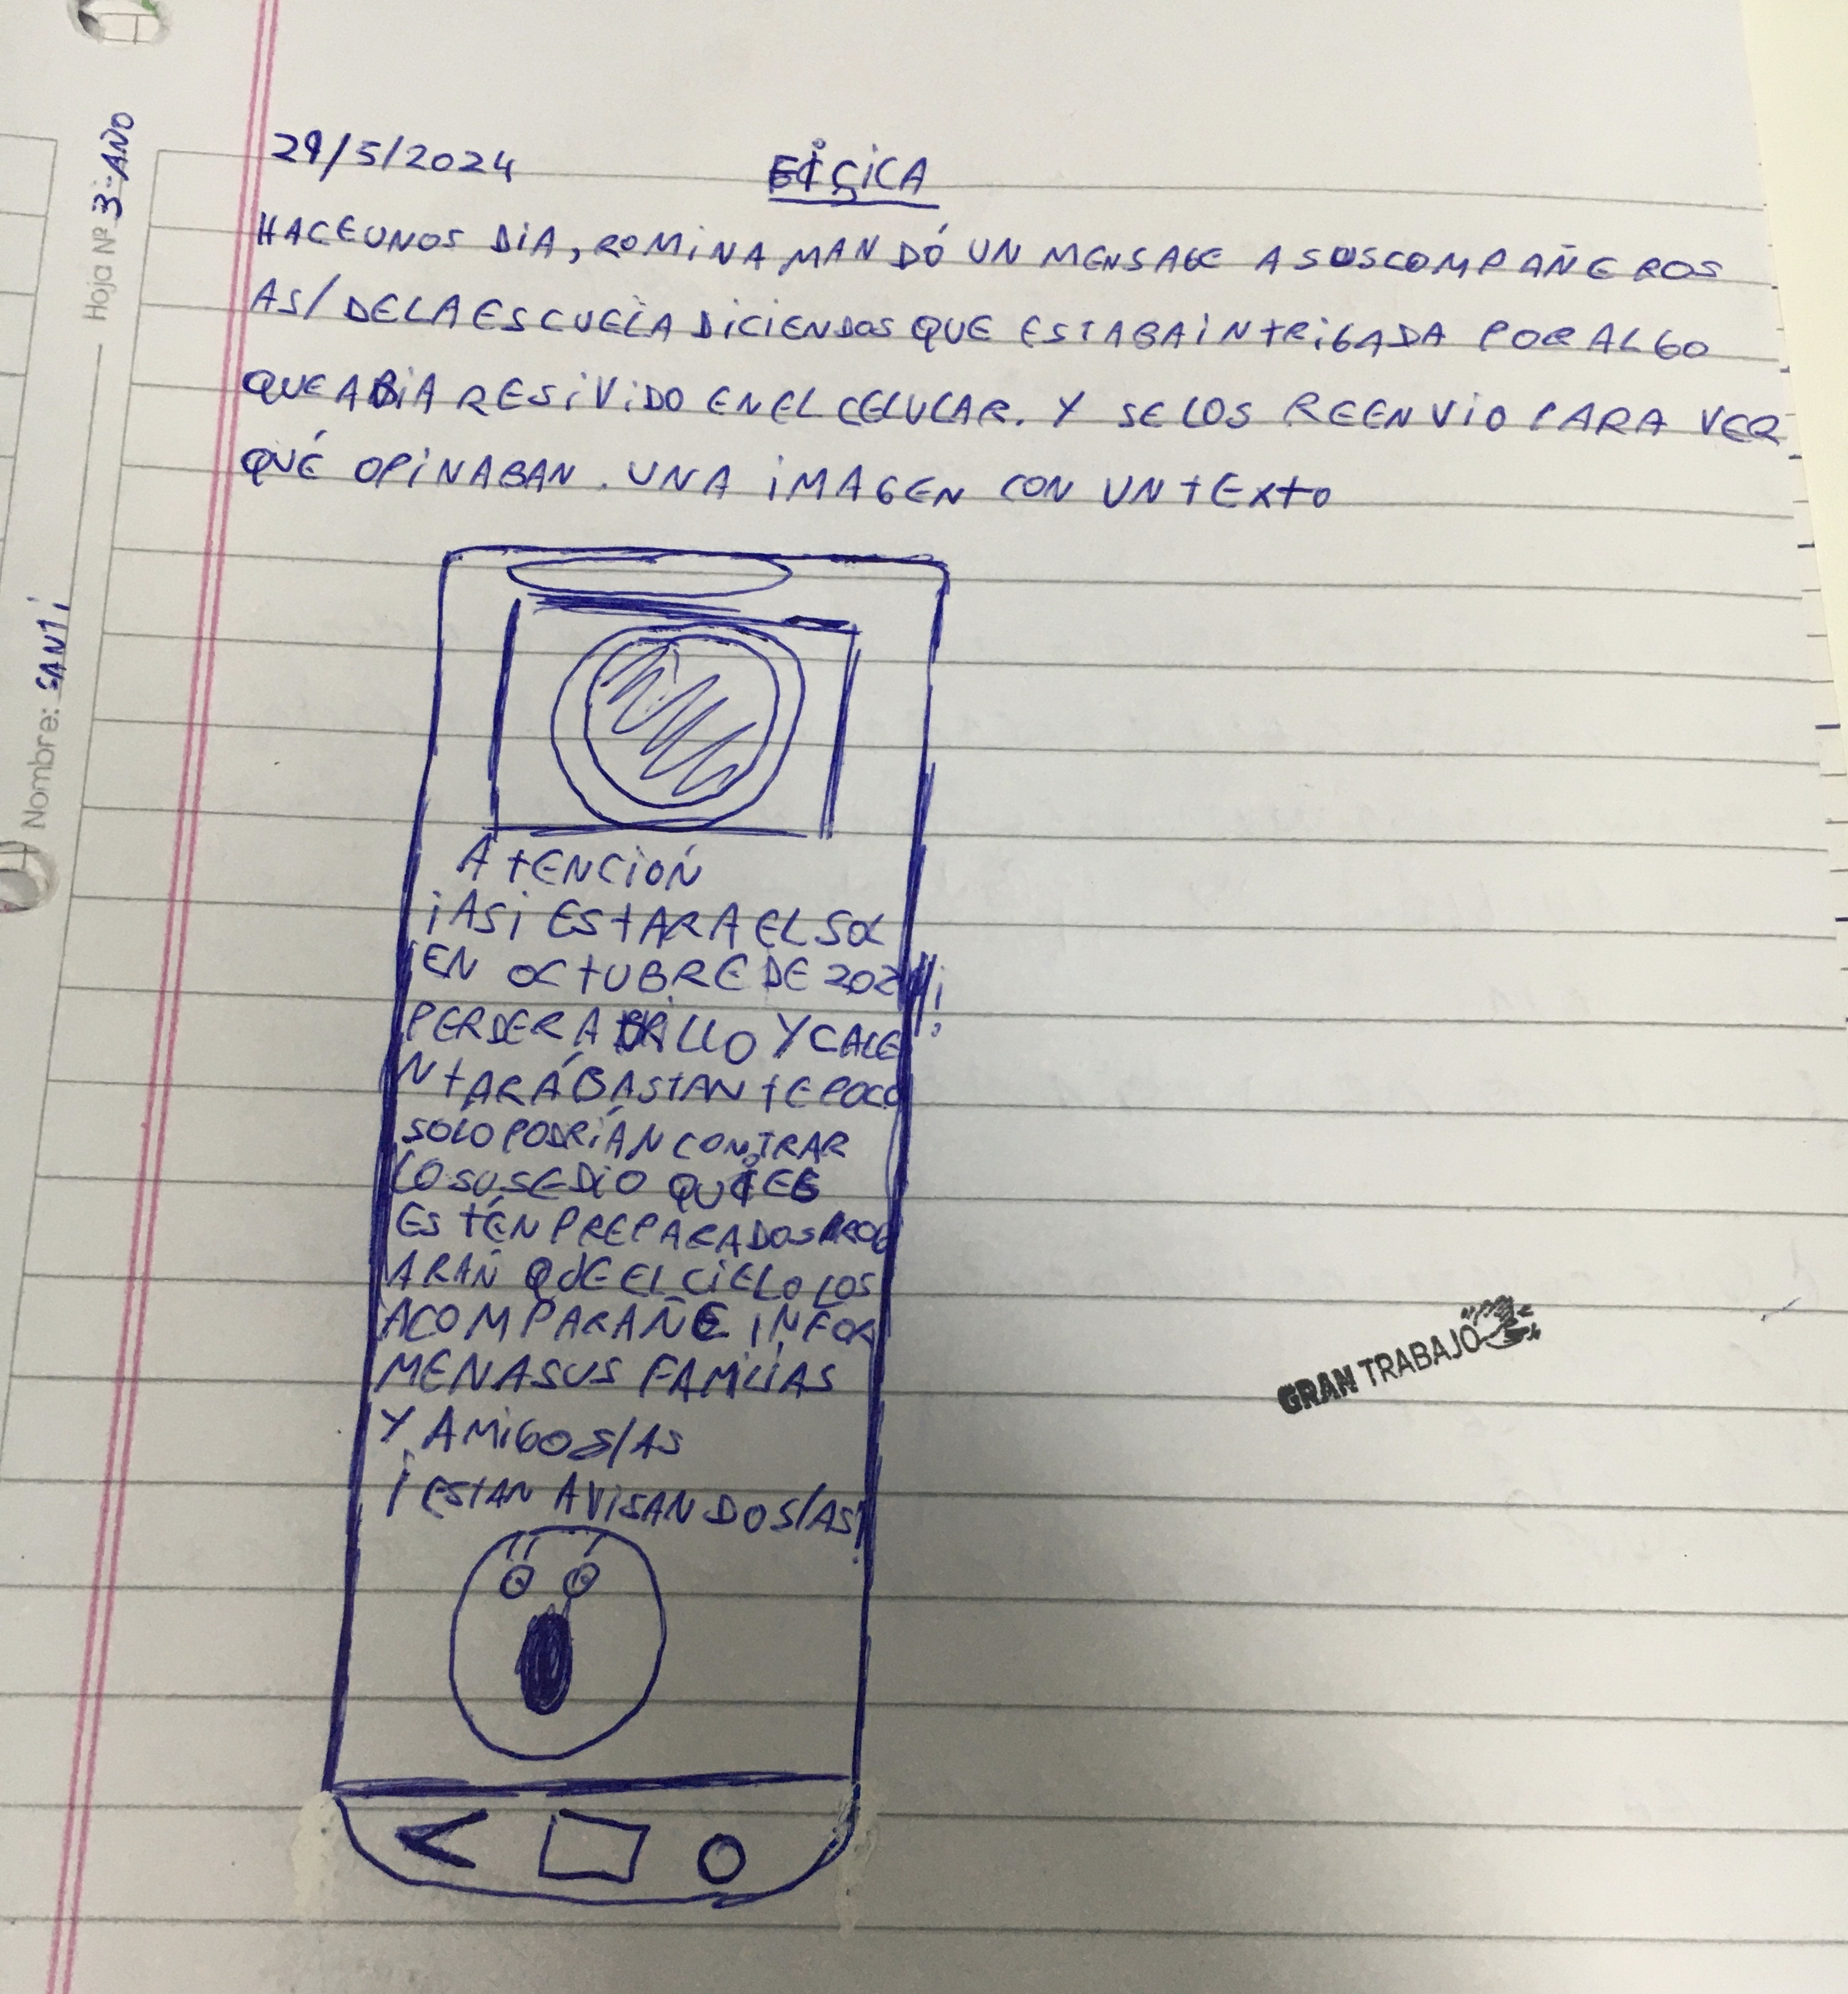 Hoja Nº 3: AÑO
Nombre: SANTi
29/5/2024
FiSiCA
HACEUNOS DiA, ROMiNA MANDÓ UN MENSAGE A SUSCOMPAÑEROS
AS/DELAESCUELA DiCiENDOS QUE ESTABAiNTRiGADA POR ALGO
QUEABiA RESiViDO ENEL CELULAR. Y SE LOS REENViO PARA VER
QUÉ OPiNABAN. UNA iMAGEN CON UN tExto
AtENCiÓN
¡ASi EStARA EL SOL
EN OCtUBRE DE 2024!
PERDERA BRiLLO Y CALE
NtARÁ BAStANtE POCO
SOLO PODRÍAN CONTRAR
LO SUSEDiO
EStÉN PREPARADOS AROG
ARAN QUE EL CiELO LOS
ACOMPARAÑE iNFOR
MENASUS FAMiLiAS
Y AMiGOS/AS
¡ESTAN AViSANDOS/AS!
GRAN TRABAJO